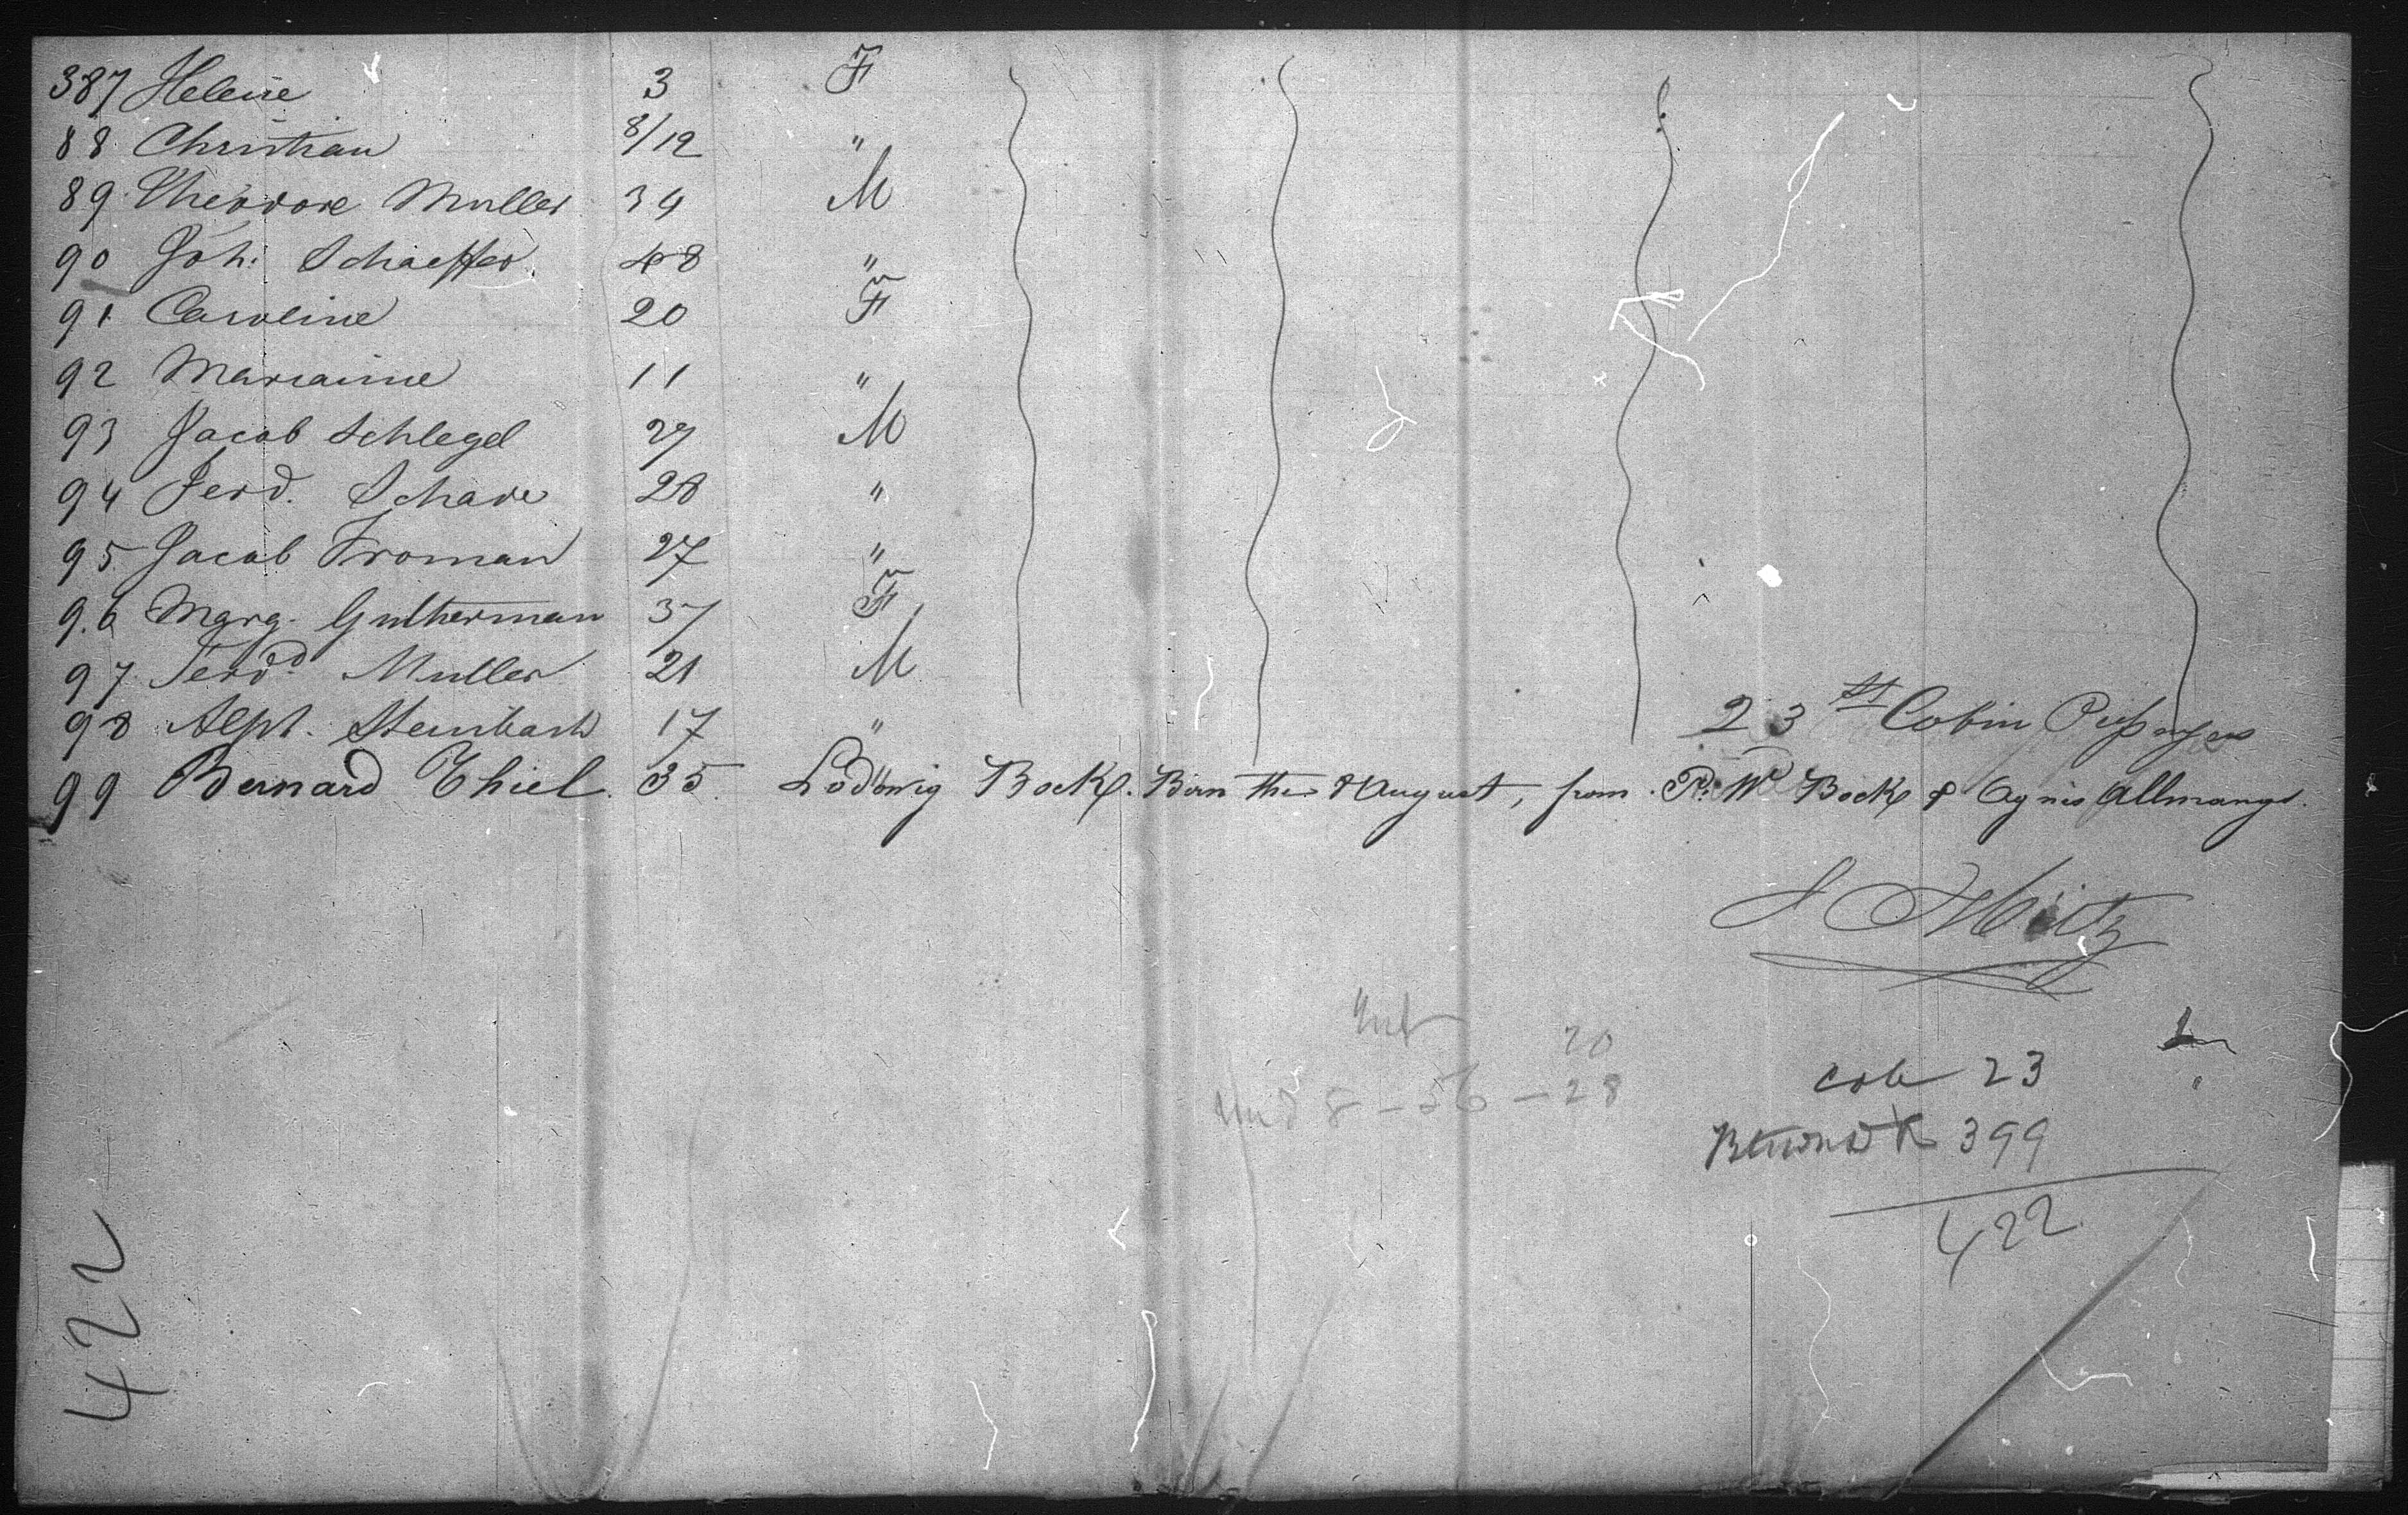 387 Helene 3 F
88 Christian 8/12 "
89 Theodore Muller 34 M
90 Joh: Schaeffer 48 "
91 Caroline 20 F
92 Marianne 11 "
93 Jacob Schlegel 27 M
94 Ferd. Schade 28 "
95 Jacob Froman 27 "
96 Marg. Gutherman 37 F
97 Ferdd. Muller 21 M
98 Alph. Steinbach 17 "
23 st Cabin Passengers
99 Bernard Thiel. 35. Lodewig Bock. Born the 8 August, from P. W. Bock & Agnis Allmang.
20
8 - 56 - 28
cab 23
399
422
422